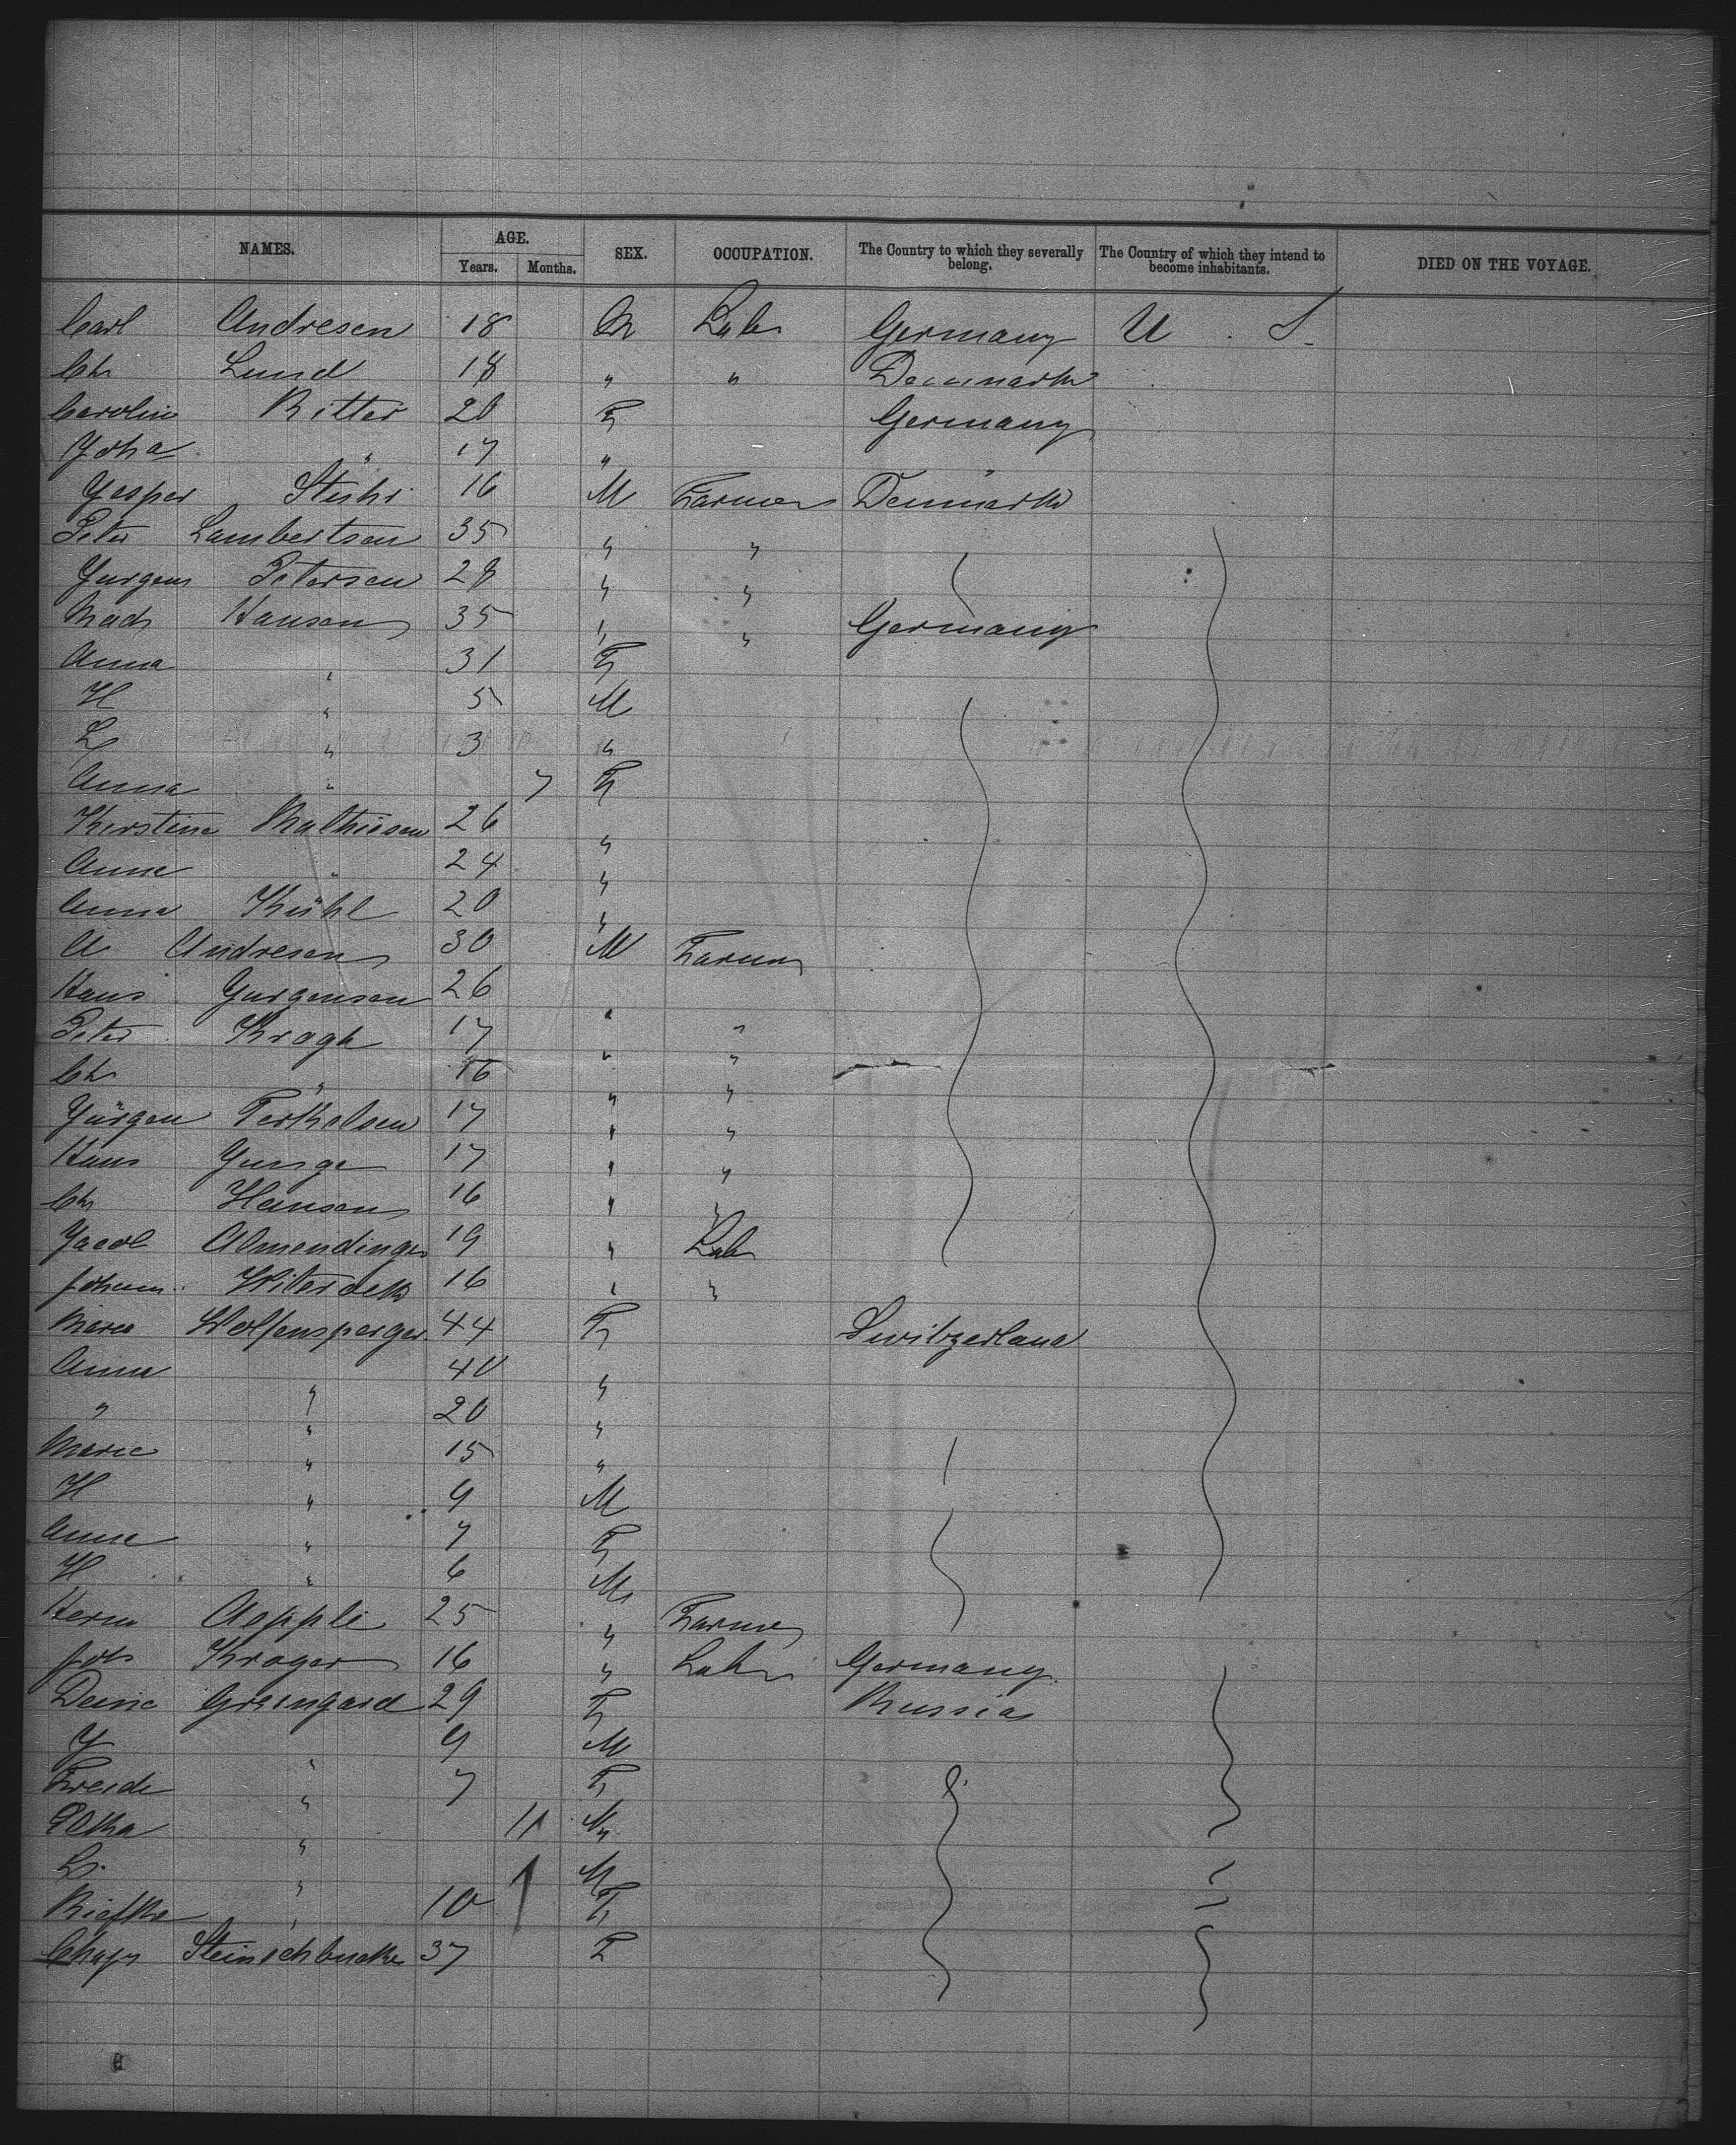 NAMES. AGE. SEX. OCCUPATION. The Country to which they severally belong. The Country of which they intend to become inhabitants. DIED ON THE VOYAGE.
Years. Months.
Carl Andresen 18 M Lab Germany U. S.
Chr Lund 18 " " Denmark
Carolin Ritter 20 F Germany
Joha " 17 " "
Jesper Stuhr 16 M Farmer Denmark
Peter Lambertsen 35 " "
Jurgens Petersen 28 " "
Mads Hansen 35 " " Germany
Anna " 31 F
H " 5 M
L " 3 "
Anna " 7 F
Kerstine Mathiesen 26 "
Anne " 24 "
Anna Kühl 20 "
A Andresen 30 M Farmer
Hans Jurgensen 26 " "
Peter Krogh 17 " "
Ch " 16 " "
Jürgen Terkelsen 17 " "
Hans Junge 17 " "
Chr Hansen 16 " "
Jacob Almendinger 19 " Lab
Johann 16 " "
Maria Wolfensperger 44 F Switzerland
Anna " 40 "
" " 20 "
Marie " 15 "
H " 9 M
Anne " 7 F
H " 6 M
Herm Aeppli 25 " Farmer
Joh Kroger 16 " Lab Germany
Greengard 29 F Russia
J " 9 M
" 7 F
" 11
L. " M
Riefke " 10 F
37 F